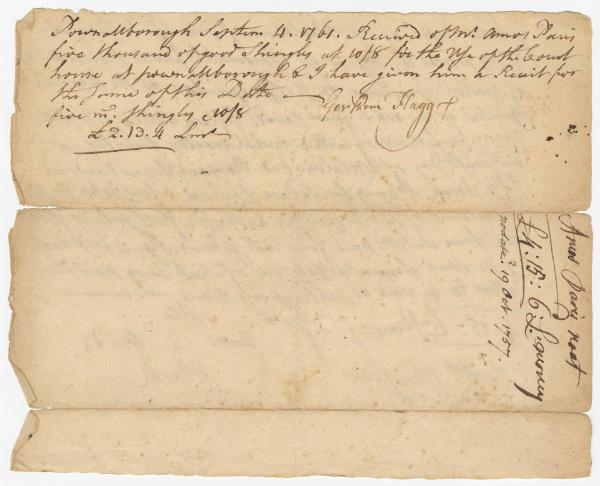 Pownallborough Septem 4. 1761. Received of Mr. Amos Paris
five thousand of good Shingles at 10/8 for the Use of the Court
house at pownallborough & I have given him a Recait for
the Same of this Date
Gershom Flagg
five m. Shingles 10/8
£2.13.4 Lm
Amos Paris noat
£4:15:6 L. money
nodate 19 Oct. 1757.